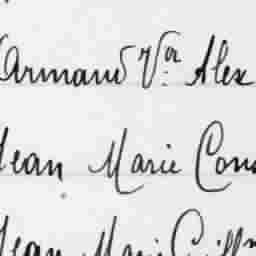 Armand Vor Alex
Jean Marie Cons
Jean Marie